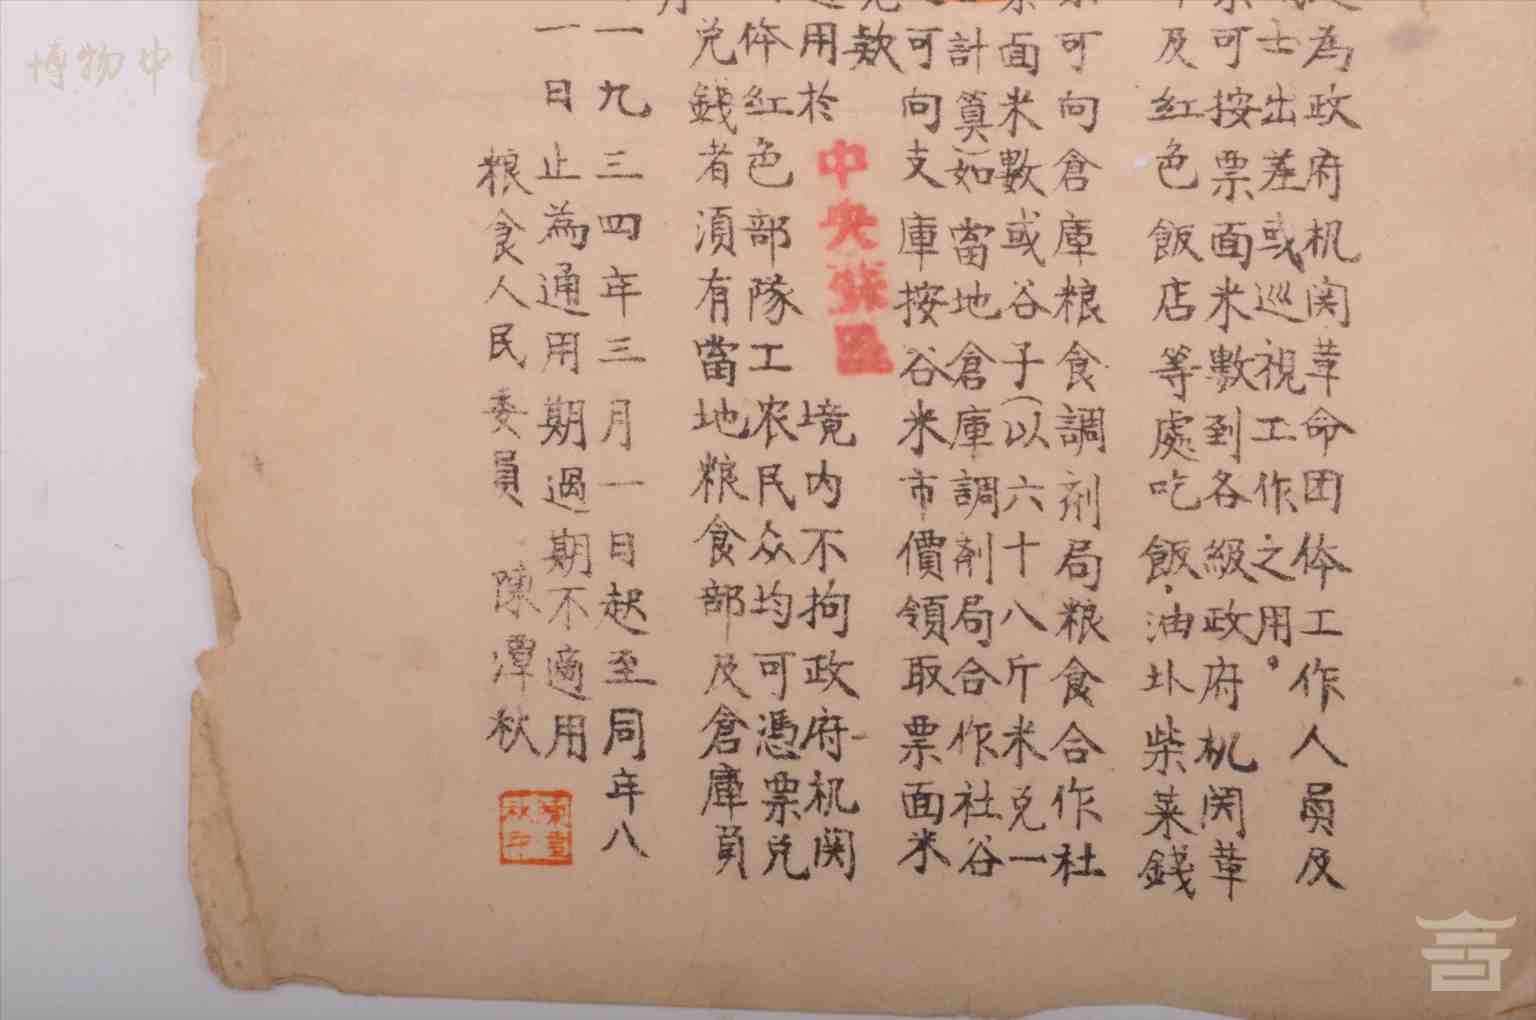 為政府机関革命团体工作人員及
士出差或巡視工作之用。
可按票面米數到各級政府机関革
及紅色飯店等處吃飯，油圤柴菜錢
可向倉庫粮食調剂局粮食合作社
面米數或谷子(以六十八斤米兑一
計算)如當地倉庫調剂局合作社谷
可向支庫按谷米市價領取票面米
欵
用於中央蘇區境内不拘政府机関
体紅色部隊工农民众均可憑票兑
兑錢者須有當地粮食部及倉庫員
一九三四年三月一日起至同年八
一日止為通用期過期不適用
粮食人民委員 陳潭秋
博物中国